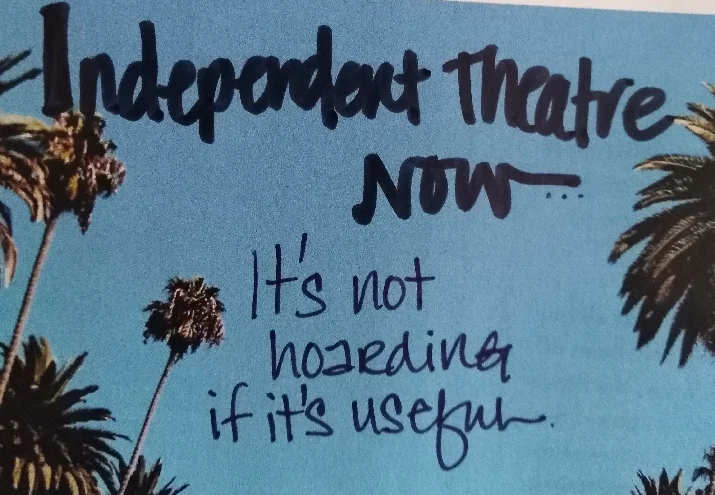 Independent Theatre
Now...
It's not
hoarding
if it's useful.